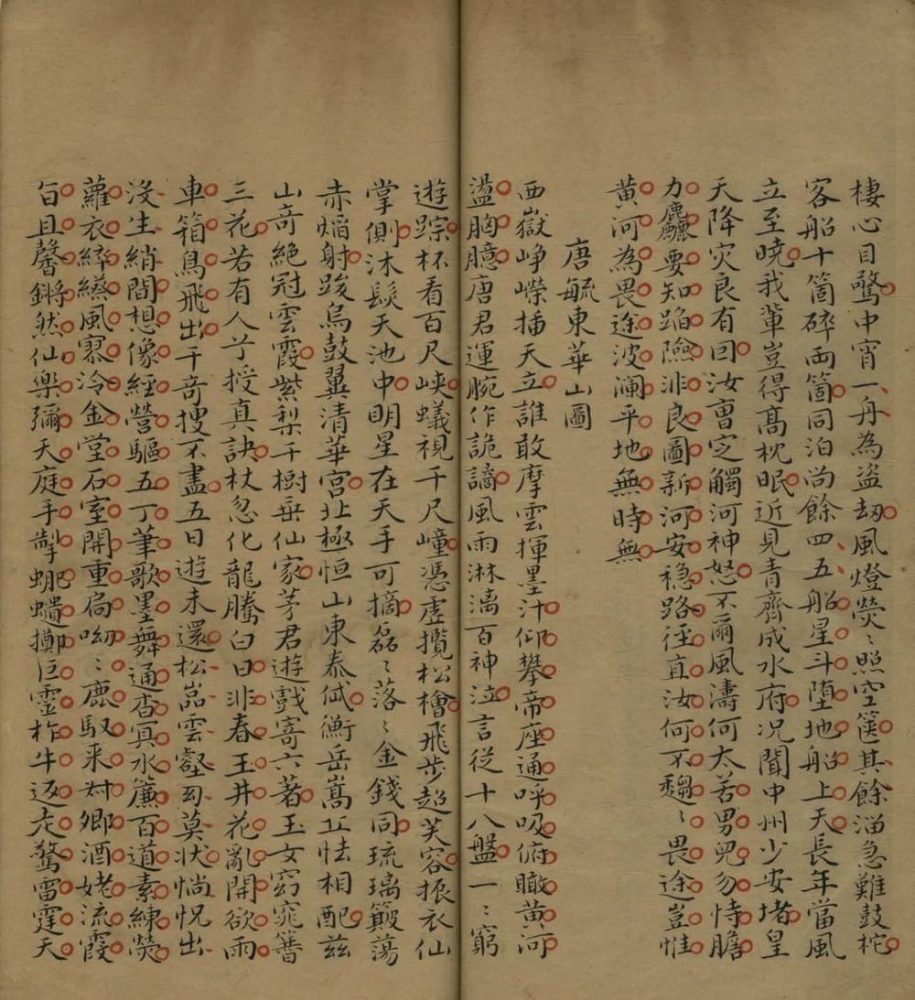 棲心目驚中宵一舟為盜刼風燈熒〻照空篋其餘溜急難鼓柁
客船十箇碎兩箇同泊尚餘四五船星斗墮地船上天長年當風
立至曉我輩豈得高枕眠近見青齊成水府况聞中州少安堵皇
天降灾良有因汝曹定觸河神怒不爾風濤何太苦男兒勿恃膽
力麤要知蹈險非良圖新河安穩路徑直汝何不趨〻畏途豈惟
黄河為畏途波瀾平地無時無
唐毓東華山圖
西嶽崢嶸插天立誰敢摩雲揮墨汁仰攀帝座通呼吸俯瞰黄河
盪胸臆唐君運腕作詭譎風雨淋漓百神泣言從十八盤一〻窮
遊踪杯看百尺峽蟻視千尺㠉憑虛攬松檜飛步超芙容振衣仙
掌側沐髮天池中明星在天手可摘磊〻落〻金錢同琉璃簸蕩
赤熖射踆烏鼓翼清華宫北極恒山東泰岱衡岳嵩丘怯相配兹
山奇絶冠雲霞紫梨千樹垂仙家茅君遊戲寄六著玉女窈窕簪
三花若有人兮授真訣杖忽化龍騰白日非春玉井花亂開欲雨
車箱鳥飛出千奇搜不盡五日遊未還松嵓雲壑多莫狀惝怳出
沒生綃間想像經營驅五丁筆歌墨舞通杳冥水簾百道素練熒
蘿衣綷縩風裏泠金堂石室開重扃呦〻鹿馭来村卿酒姥流霞
旨且馨鏘然仙樂彌天庭手掣蚍蟻擲巨靈柞牛返走驚雷霆天